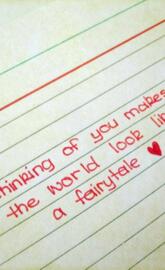 thinking of you makes
the world look li
a fairytale ♥